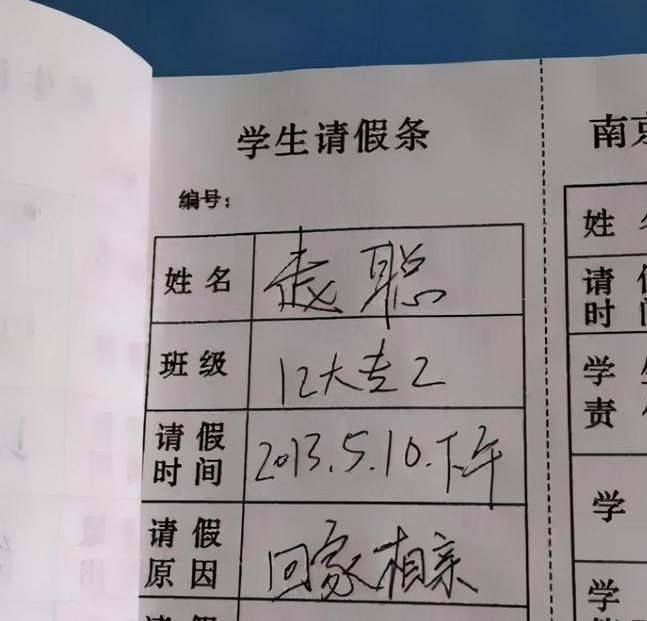 学生请假条
编号：
姓名 聪
班级 12大专2
请假时间 2013.5.10.下午
请假原因 回家相亲
南京
姓
请
时
学
责
学
学